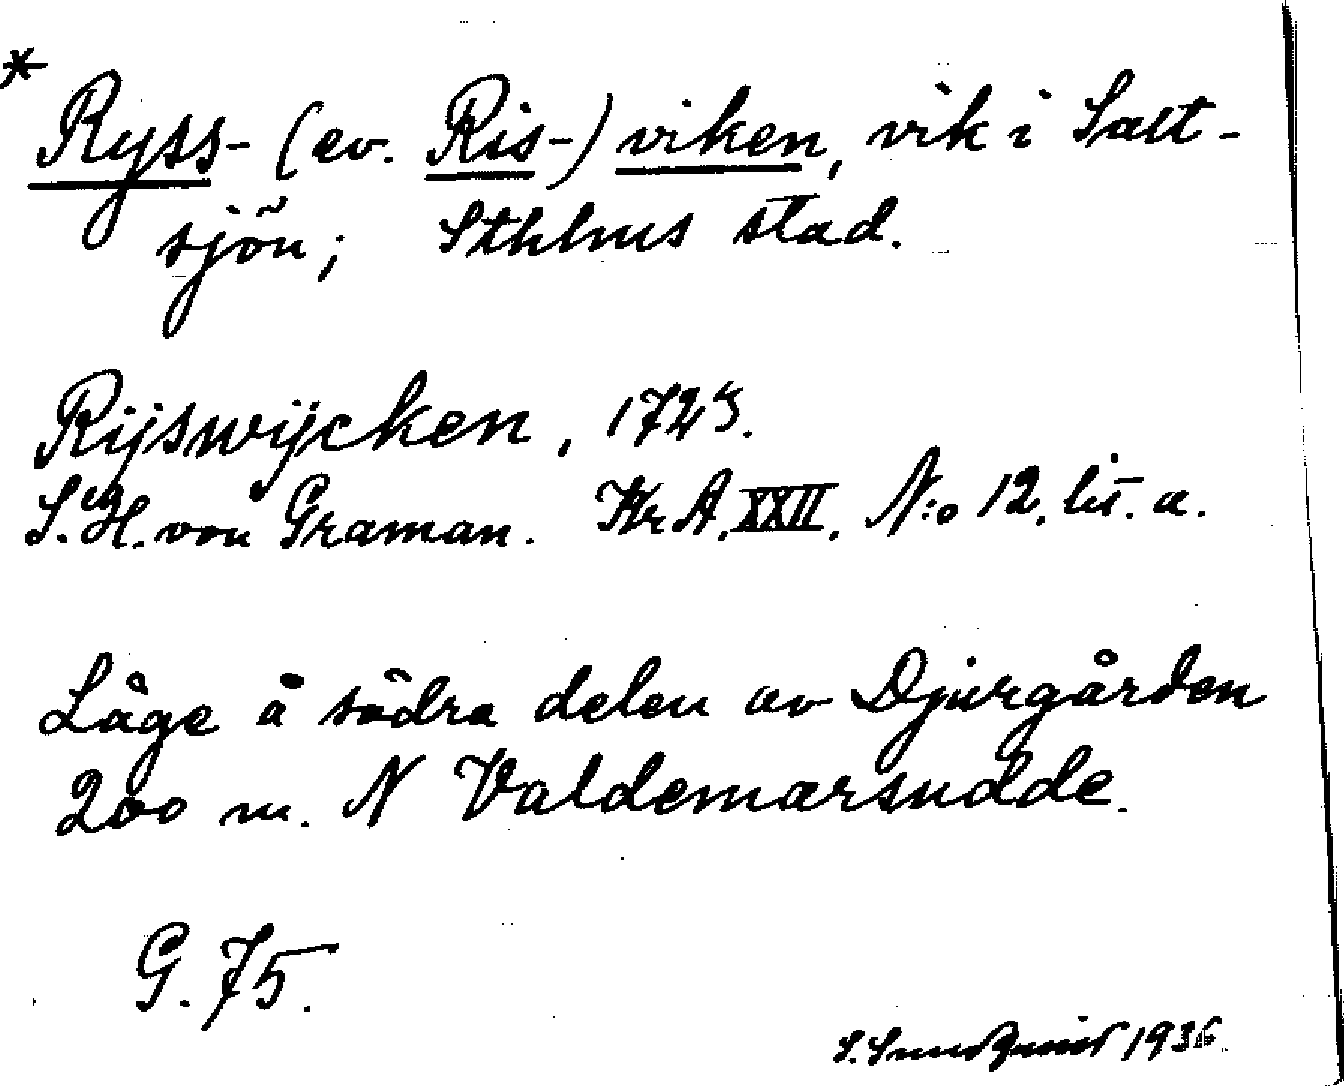 * Ryss- (ev. Ris-) viken, vik i Salt-
sjön; Sthlms stad.
Rijswijcken, 1723.
S. H. von Graman. Kr A. XXII. N:o 12. lit. a.
Läge å södra delen av Djurgården
200 m. N Valdemarsudde.
G. 75.
S. Sundquist 1936